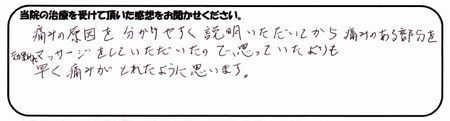 当院の治療を受けて頂いた感想をお聞かせください。
痛みの原因を分かりやすく説明いただいてから痛みのある部分を
効果的にマッサージをしていただいたので、思っていたよりも
早く痛みがとれたように思います。